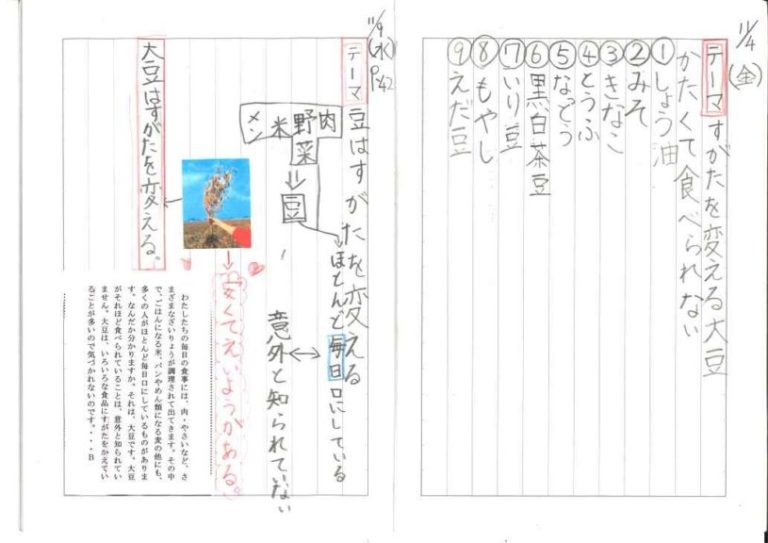 11/4(金)
テーマ すがたを変える大豆
かたくて食べられない
①しょう油
②みそ
③きなこ
④とうふ
⑤なっとう
⑥黒白茶豆
⑦いり豆
⑧もやし
⑨えだ豆
11/9(水)
P42
テーマ 豆はすがたを変える
肉
野菜
米
メン
豆
ほとんど毎日口にしている
意外と知られていない
安くてえいようがある。
大豆はすがたを変える。
わたしたちの毎日の食事には、肉・やさいなど、さ
まざまなざいりょうが調理されて出てきます。その中
で、ごはんになる米、パンやめん類になる麦の他にも、
多くの人がほとんど毎日口にしているものがありま
す。なんだか分かりますか。それは、大豆です。大豆
がそれほど食べられていることは、意外と知られてい
ません。大豆は、いろいろな食品にすがたをかえてい
ることが多いので気づかれないのです。・・・B